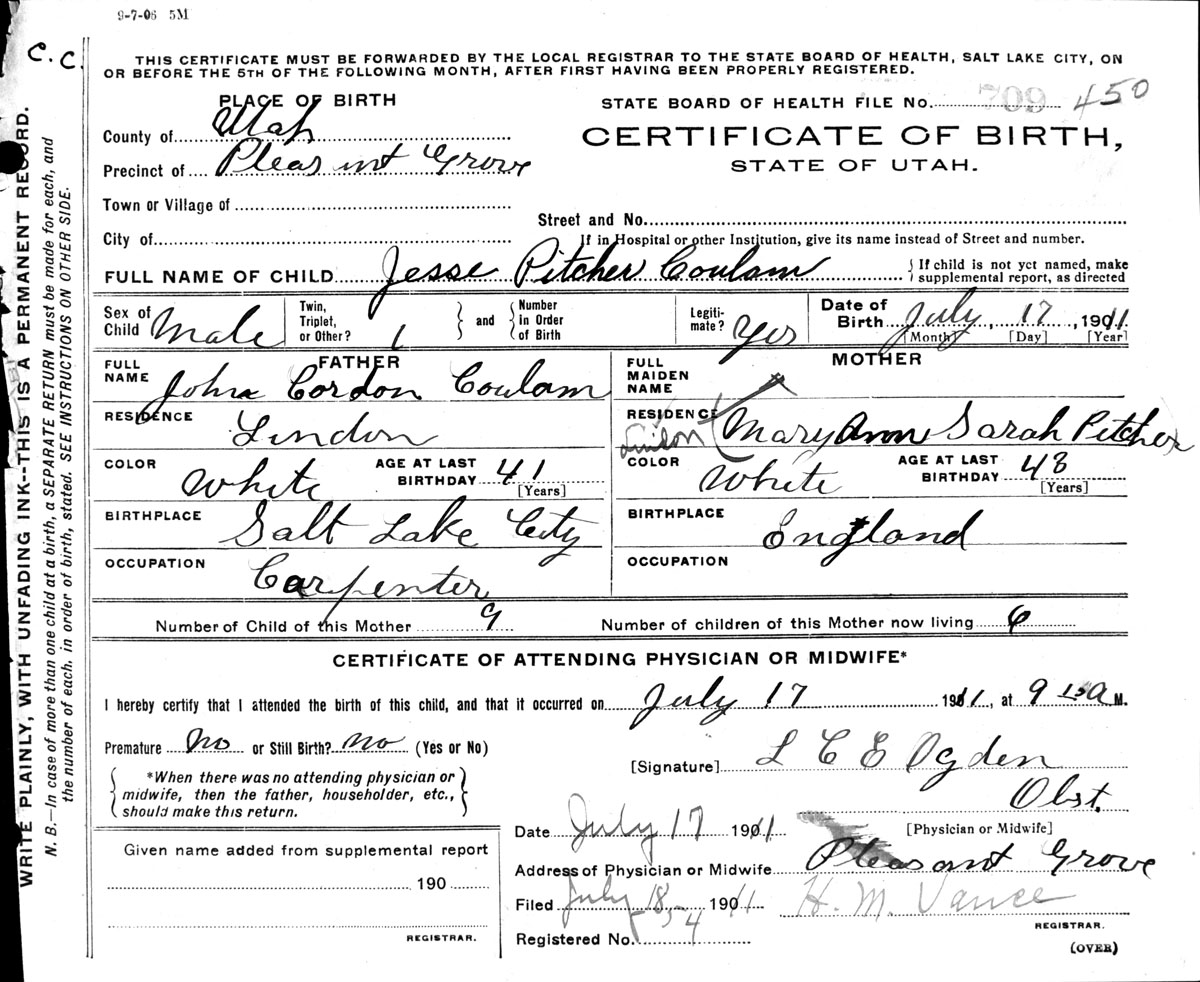 9-7-06 5M
C. C.
THIS CERTIFICATE MUST BE FORWARDED BY THE LOCAL REGISTRAR TO THE STATE BOARD OF HEALTH, SALT LAKE CITY, ON
OR BEFORE THE 5TH OF THE FOLLOWING MONTH, AFTER FIRST HAVING BEEN PROPERLY REGISTERED.
WRITE PLAINLY, WITH UNFADING INK--THIS IS A PERMANENT RECORD.
N. B.—In case of more than one child at a birth, a SEPARATE RETURN must be made for each, and
the number of each, in order of birth, stated. SEE INSTRUCTIONS ON OTHER SIDE.
PLACE OF BIRTH
STATE BOARD OF HEALTH FILE No. 709 450
County of Utah
CERTIFICATE OF BIRTH,
Precinct of Pleasant Grove
STATE OF UTAH.
Town or Village of
Street and No.
City of
If in Hospital or other Institution, give its name instead of Street and number.
FULL NAME OF CHILD Jesse Pitcher Coulam
If child is not yet named, make
supplemental report, as directed
Sex of Child Male
Twin, Triplet, or Other? 1
and
Number in Order of Birth
Legiti-mate? Yes
Date of Birth July, 17, 1911
[Month] [Day] [Year]
FATHER
FULL NAME John Cordon Coulam
RESIDENCE Lindon
COLOR White
AGE AT LAST BIRTHDAY 41
[Years]
BIRTHPLACE Salt Lake City
OCCUPATION Carpenter
MOTHER
FULL MAIDEN NAME
RESIDENCE Mary Ann Sarah Pitcher
COLOR White
AGE AT LAST BIRTHDAY 43
[Years]
BIRTHPLACE England
OCCUPATION
Number of Child of this Mother 9
Number of children of this Mother now living 6
CERTIFICATE OF ATTENDING PHYSICIAN OR MIDWIFE*
I hereby certify that I attended the birth of this child, and that it occurred on July 17 1911, at 9 15 a M.
Premature No or Still Birth? No (Yes or No)
*When there was no attending physician or
midwife, then the father, householder, etc.,
should make this return.
[Signature] L C E Ogden
Obst.
[Physician or Midwife]
Date July 17 1911
Address of Physician or Midwife Pleasant Grove
Given name added from supplemental report
190
REGISTRAR.
Filed July 18, 1911 H. M. Vance
REGISTRAR.
Registered No. 54
(OVER)